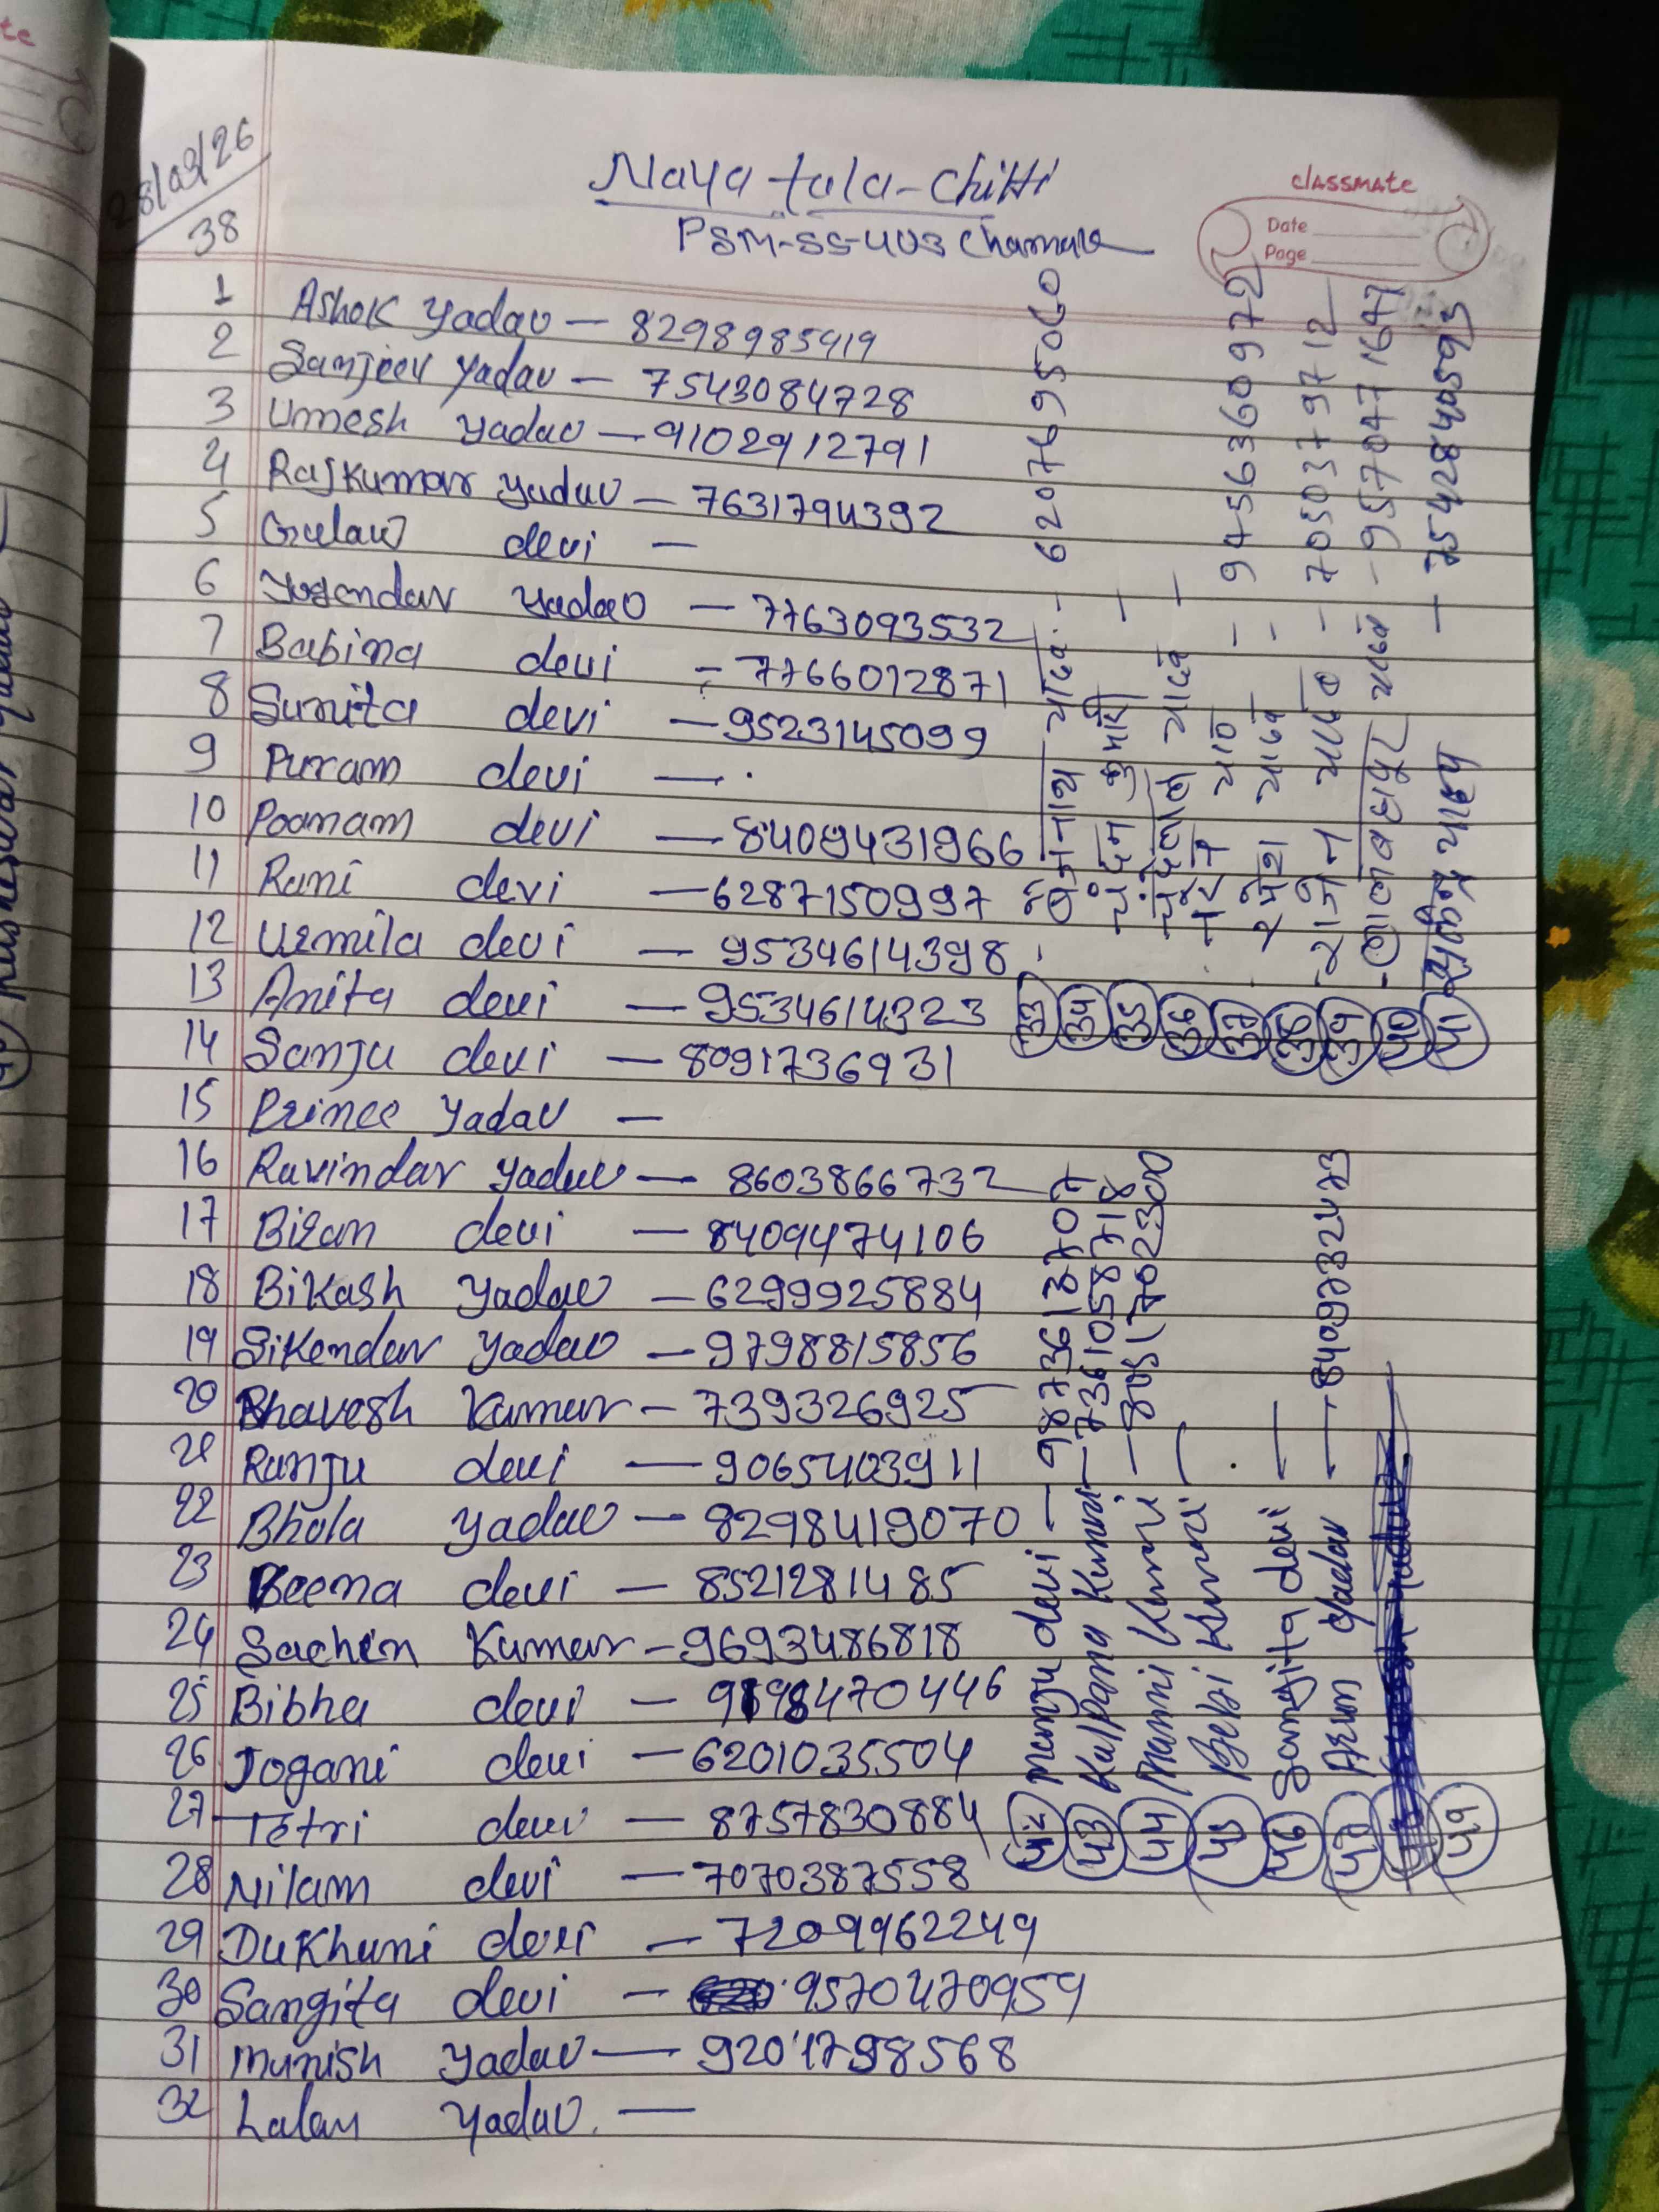 28/03/26
38
Naya tola-Chitti
PSM-SS-403
classmate
Date
Page
1 Ashok Yadav — 8298985919
2 Sanjeev Yadav — 7543084728
3 Umesh Yadav — 9102912791
4 Rajkumar Yadav — 7631794392
5 devi —
6 Yogendar Yadav — 7763093532
7 Babina devi — 7766012871
8 Sunita devi — 9523145099
9 Punam devi —
10 Poonam devi — 8409431966
11 Rani devi — 6287150997
12 Urmila devi — 9534614398
13 Anita devi — 9534614323
14 Sanju devi — 8091736931
15 Prince Yadav —
16 Ravindar Yadav — 8603866732
17 devi — 8409474106
18 Bikash Yadav — 6299925884
19 Sikendar Yadav — 9798815856
20 Bhavesh Kumar — 739326925
21 Ranju devi — 9065403911
22 Bhola Yadav — 8298419070
23 Beena devi — 8521281485
24 Sachin Kumar — 9693486818
25 Bibha devi —
26 Jogani devi — 6201035504
27 Tetri devi — 8757830884
28 Nilam devi — 7070387558
29 Dukhani devi — 7209962249
30 Sangita devi — 9570470959
31 Munish Yadav — 9201798568
32 Lalan Yadav —
33 यादव — 6207695060
34 कुमारी —
35 यादव —
36 — 9456360972
37 रमेश यादव —
38 राजेन यादव — 7050379712
39 यादव — 9570471647
40 यादव — 7542840593
41
42 Manju devi — 9873613707
43 Kalpana Kumari — 7361058718
44 Kumari —
45 Bebi Kumari —
46 Sangita devi —
47 Arun Yadav — 8409332473
49